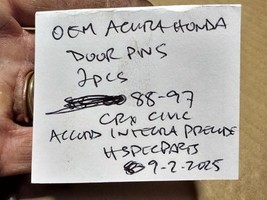 OEM ACURA HONDA
DOOR PINS
2PCS
88-97
CRX CIVIC
ACCORD INTEGRA PRELUDE
HSPECPARTS
9-2-2025